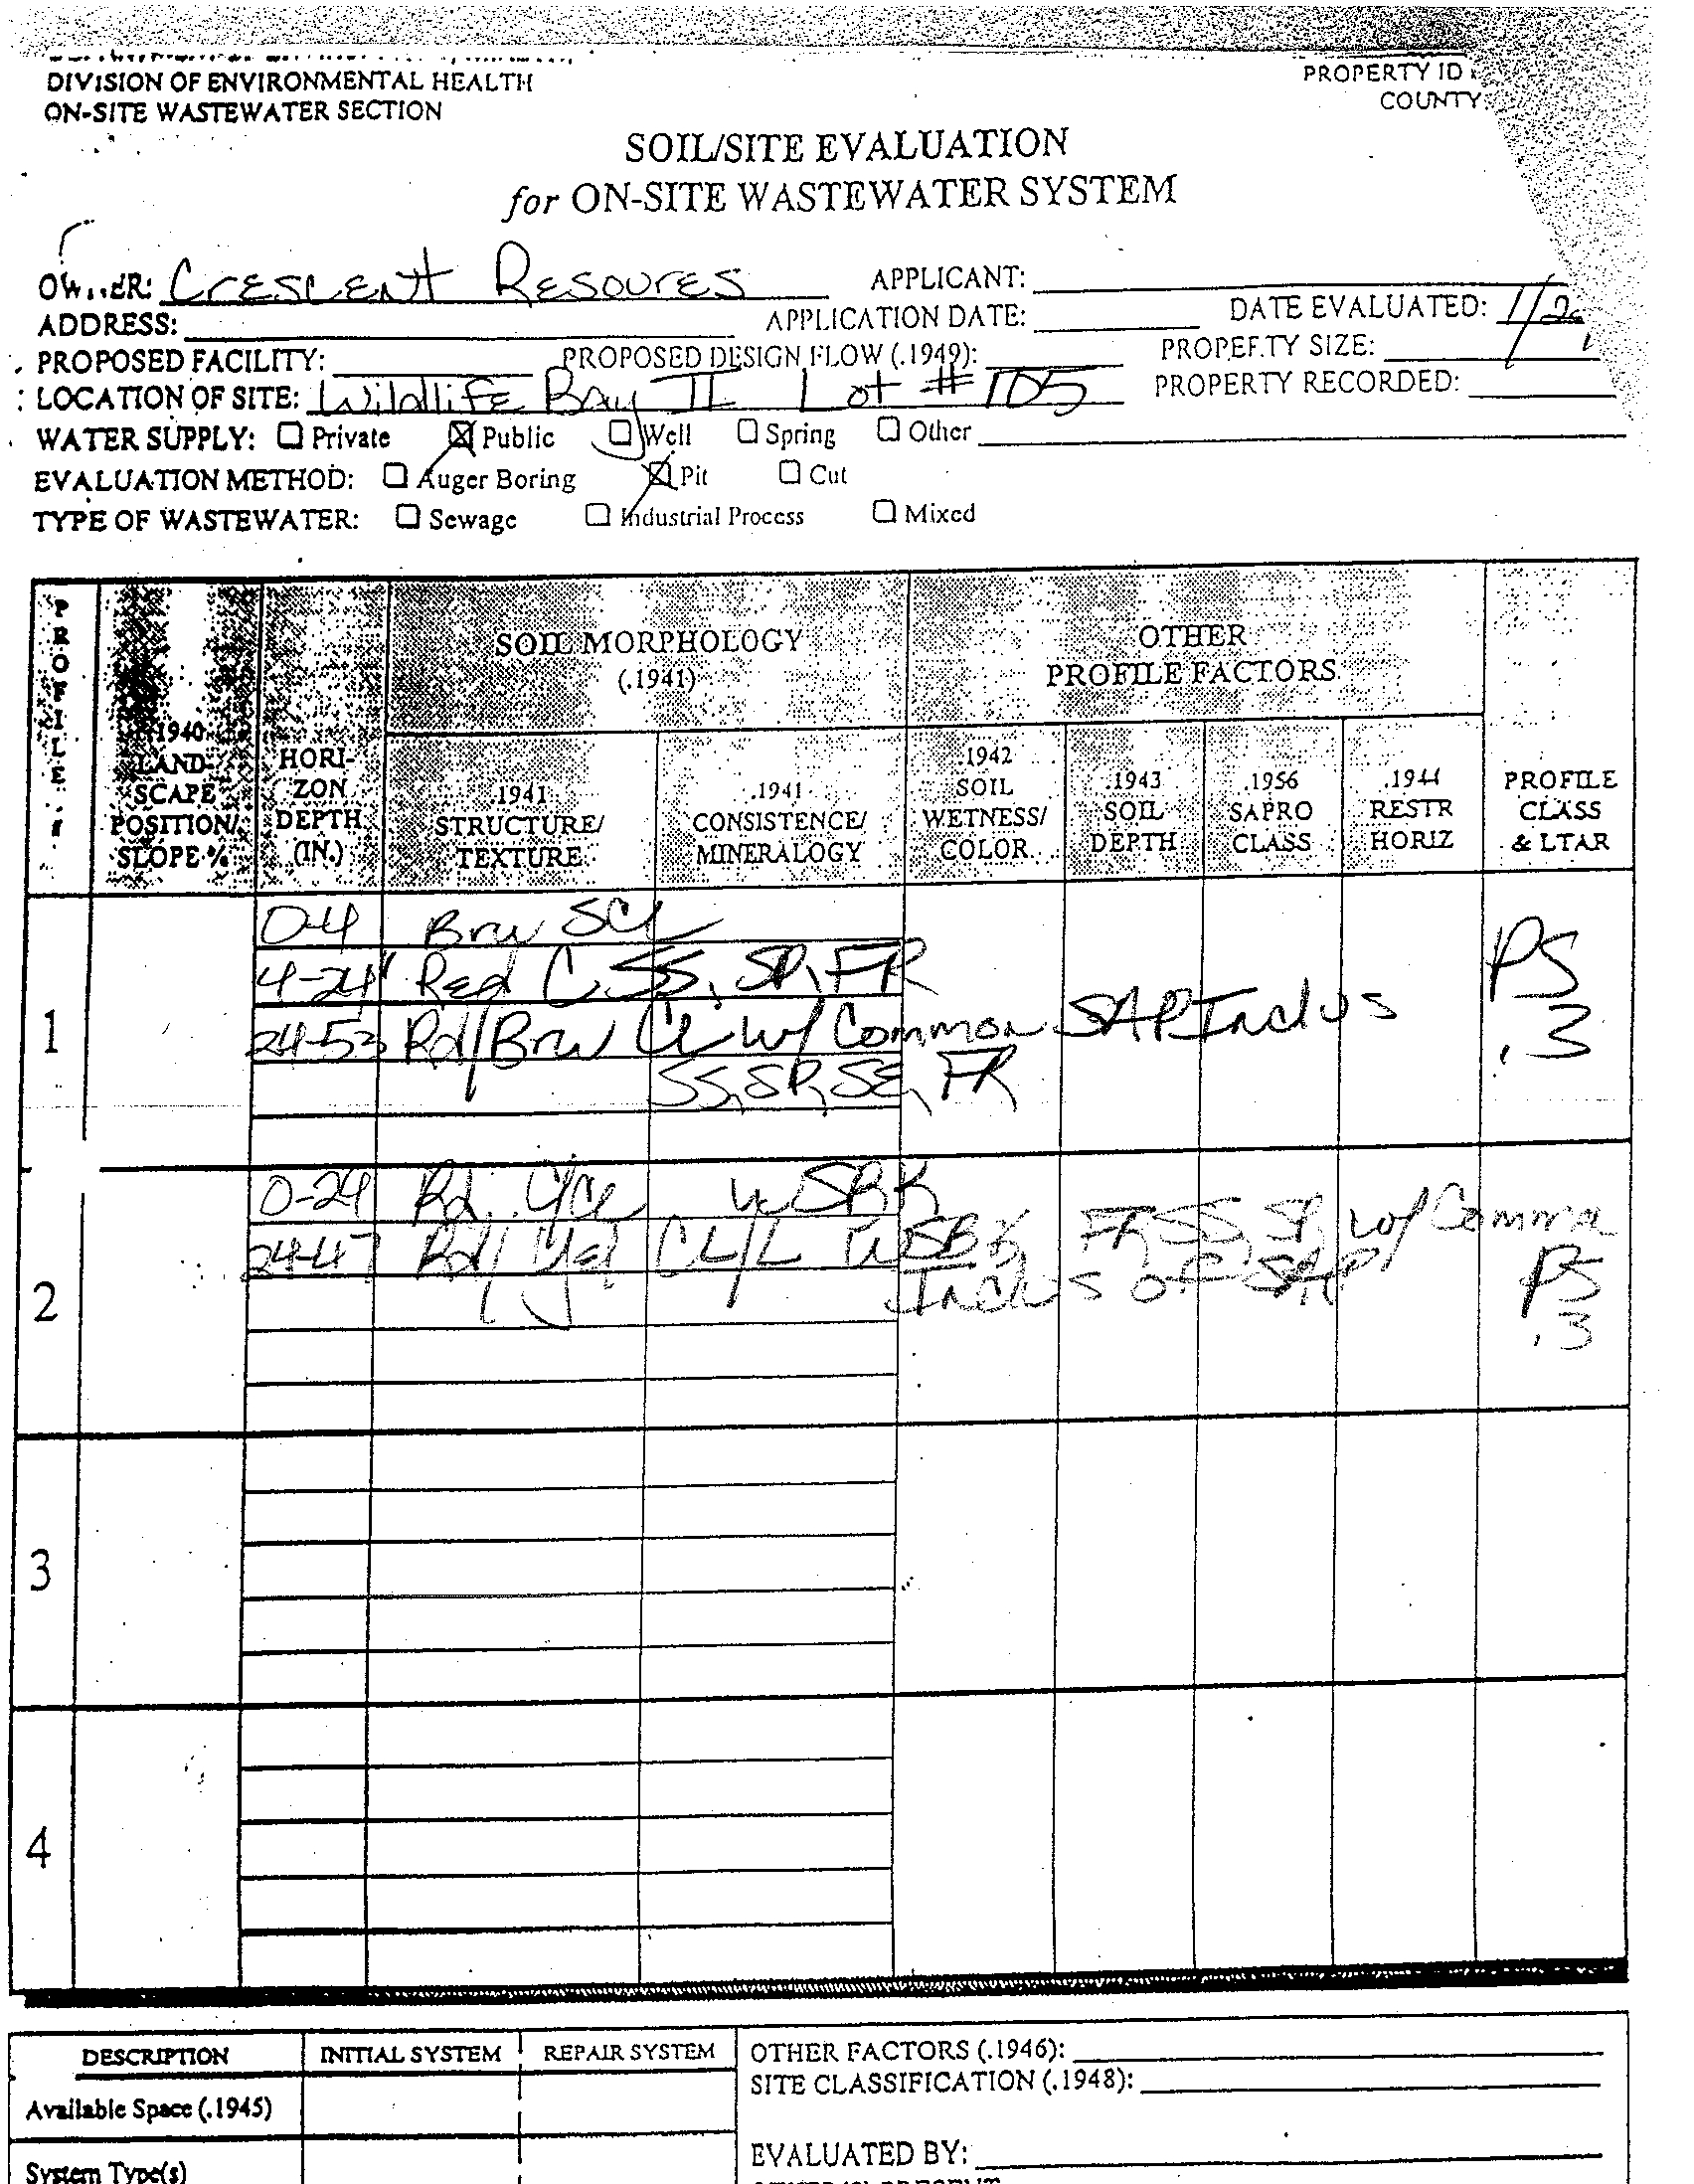 DIVISION OF ENVIRONMENTAL HEALTH
ON-SITE WASTEWATER SECTION
PROPERTY ID
COUNTY:
SOIL/SITE EVALUATION
for ON-SITE WASTEWATER SYSTEM
OWNER: Crescent Resoures APPLICANT:
ADDRESS: APPLICATION DATE: DATE EVALUATED: 1/2
PROPOSED FACILITY: PROPOSED DESIGN FLOW (.1949): PROPERTY SIZE:
LOCATION OF SITE: WildLife Bay II Lot #105 PROPERTY RECORDED:
WATER SUPPLY: ☐ Private ☒ Public ☐ Well ☐ Spring ☐ Other
EVALUATION METHOD: ☐ Auger Boring ☒ Pit ☐ Cut
TYPE OF WASTEWATER: ☐ Sewage ☐ Industrial Process ☐ Mixed
PROFILE #
.1940 LAND- SCAPE POSITION/ SLOPE %
HORI- ZON DEPTH (IN.)
SOIL MORPHOLOGY
(.1941)
OTHER
PROFILE FACTORS
.1941 STRUCTURE/ TEXTURE
.1941 CONSISTENCE/ MINERALOGY
.1942 SOIL WETNESS/ COLOR
.1943 SOIL DEPTH
.1956 SAPRO CLASS
.1944 RESTR HORIZ
PROFILE CLASS & LTAR
1
0-4 Brw SCL
4-24 Red C SS, SP, FR
24-53 Rd/Brw CL w/ Common SAP Inclus
SS, SP, SE, FR
PS
.3
2
0-24 Rd wSBK
24-47 Rd/Yel CL/L wSBK FR, SS, SP, w/ Common
Inclus of SAP
PS
.3
3
4
DESCRIPTION INITIAL SYSTEM REPAIR SYSTEM
Available Space (.1945)
System Type(s)
OTHER FACTORS (.1946):
SITE CLASSIFICATION (.1948):
EVALUATED BY: